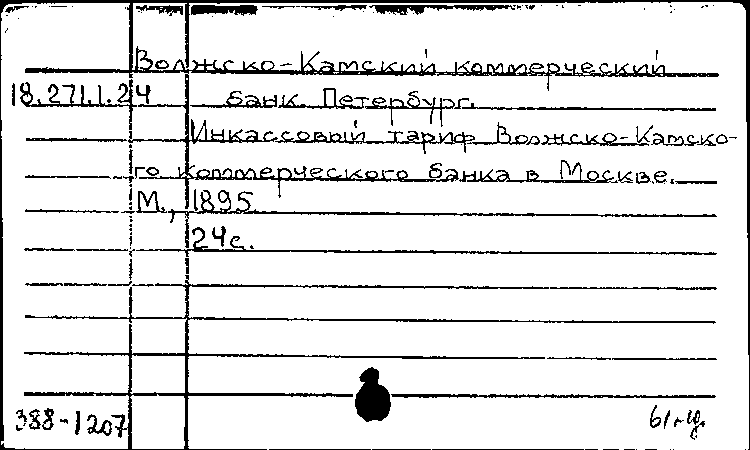 Волжско-Камский коммерческий
18.271.1.24 банк. Петербург.
Инкассовый тариф Волжско-Камско-
го коммерческого банка в Москве.
М., 1895
24с.
388-1207